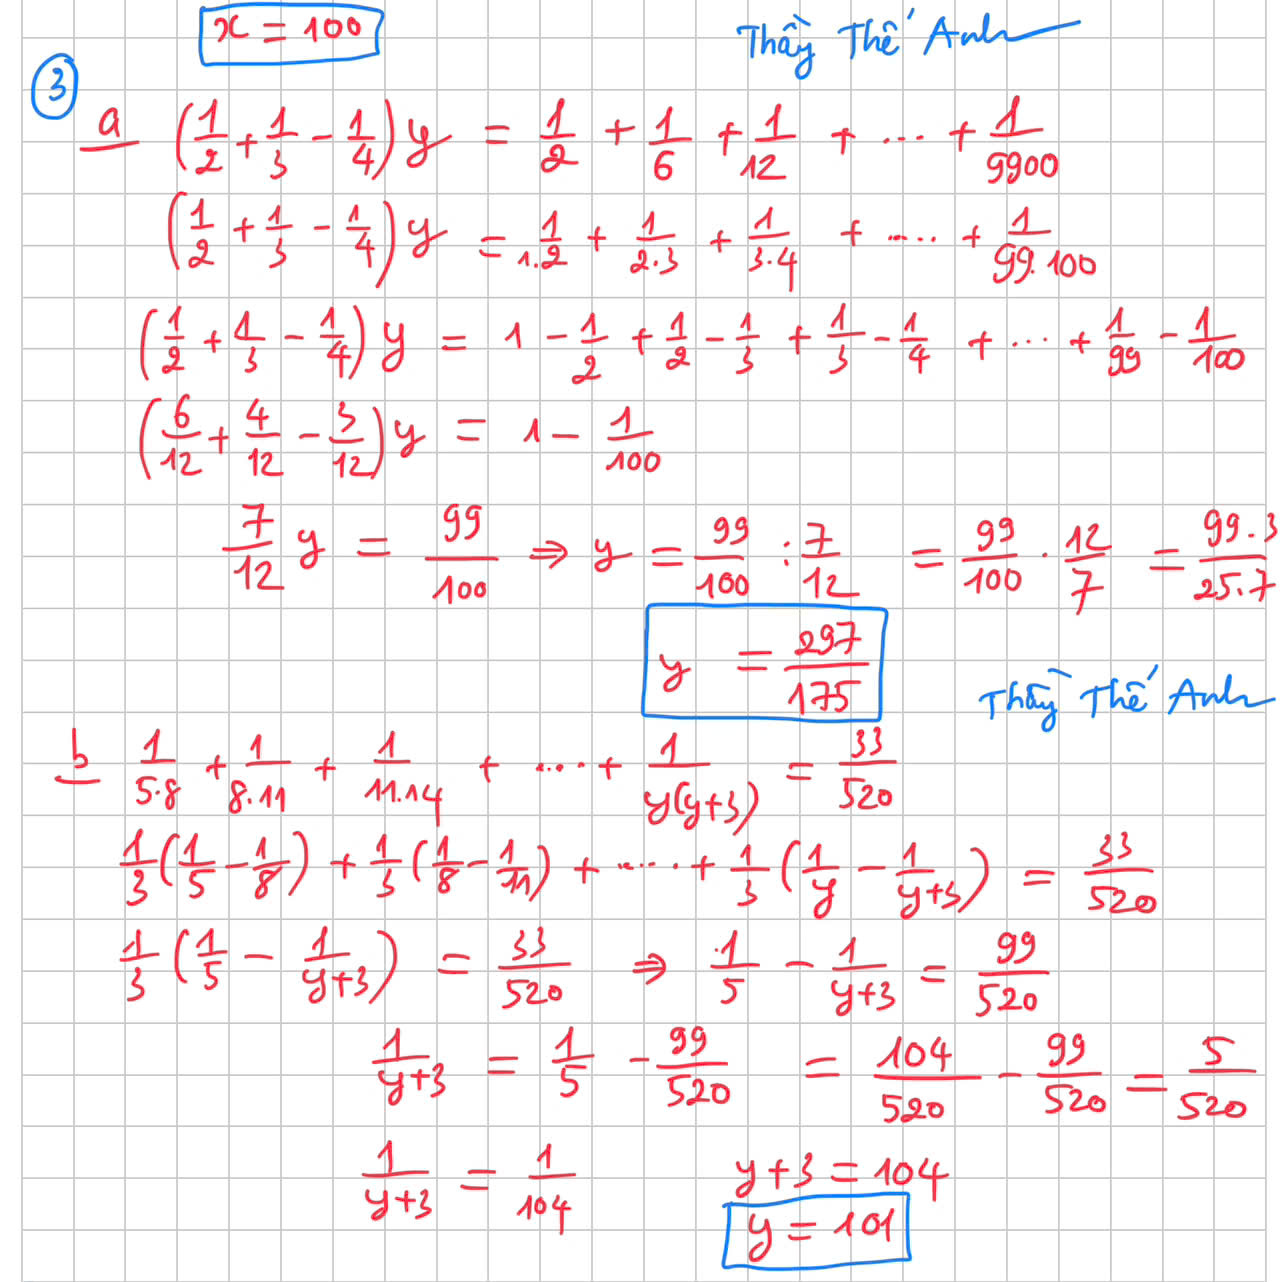 x = 100
Thầy Thế Anh
3
a (1/2 + 1/3 - 1/4) y = 1/2 + 1/6 + 1/12 + ... + 1/9900
(1/2 + 1/3 - 1/4) y = 1/1.2 + 1/2.3 + 1/3.4 + .... + 1/99.100
(1/2 + 1/3 - 1/4) y = 1 - 1/2 + 1/2 - 1/3 + 1/3 - 1/4 + ... + 1/99 - 1/100
(6/12 + 4/12 - 3/12) y = 1 - 1/100
7/12 y = 99/100 => y = 99/100 : 7/12 = 99/100 . 12/7 = 99.3/25.7
y = 297/175
Thầy Thế Anh
b 1/5.8 + 1/8.11 + 1/11.14 + .... + 1/y(y+3) = 33/520
1/3 (1/5 - 1/8) + 1/3 (1/8 - 1/11) + .... + 1/3 (1/y - 1/y+3) = 33/520
1/3 (1/5 - 1/y+3) = 33/520 => 1/5 - 1/y+3 = 99/520
1/y+3 = 1/5 - 99/520 = 104/520 - 99/520 = 5/520
1/y+3 = 1/104 y+3 = 104
y = 101